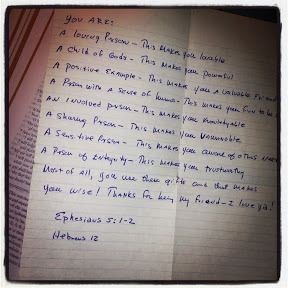 You ARE:
A loving Person - This makes you lovable
A child of Gods - This makes you powerful
A positive Example - This makes you a valuable Friend
A Person with a sense of humor - This makes you fun to be
An involved person - This makes you
A sharing Person - This makes you
A Sensitive Person - This makes you aware of others needs
A Person of Integrity - This makes you trustworthy
Most of All, you use these gifts and that makes
you wise! Thanks for being my Friend - I love ya!
Ephesians 5:1-2
Hebrews 12